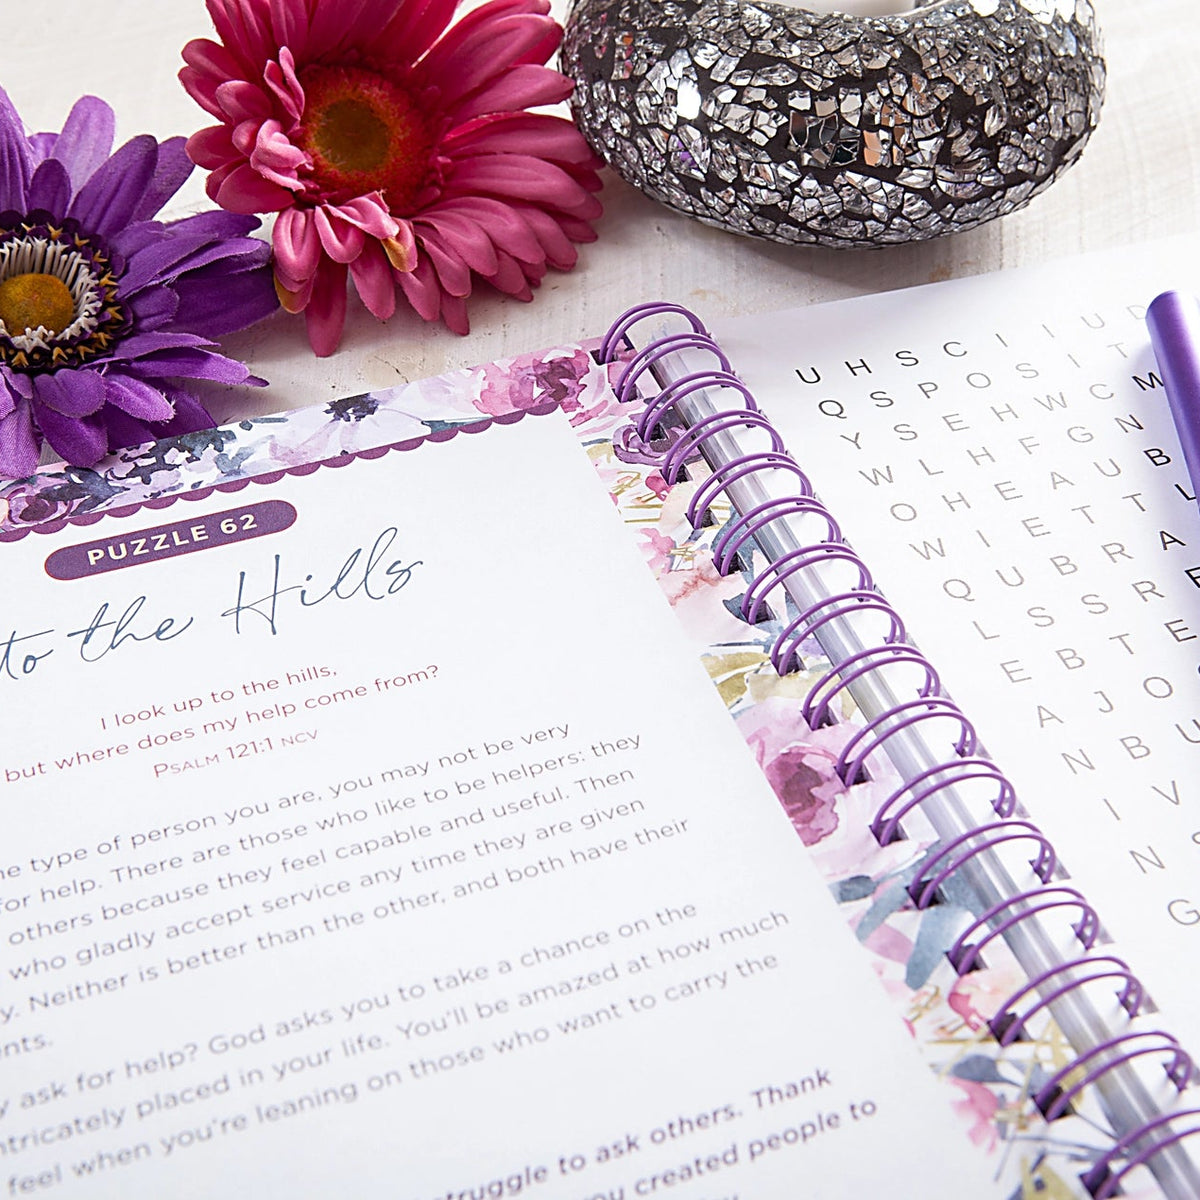 PUZZLE 62
to the Hills
I look up to the hills,
but where does my help come from?
PSALM 121:1 NCV
type of person you are, you may not be very
for help. There are those who like to be helpers: they
others because they feel capable and useful. Then
who gladly accept service any time they are given
Neither is better than the other, and both have their
ask for help? God asks you to take a chance on the
placed in your life. You'll be amazed at how much
feel when you're leaning on those who want to carry the
to ask others. Thank
you created people to
U H S C I I U D
Q S P O S I T
Y S E H W C M
W L H F G N B
O H E A U L
W I E T T A
Q U B R
L S S R
E B T E
A J O
N B U
I V
N
G